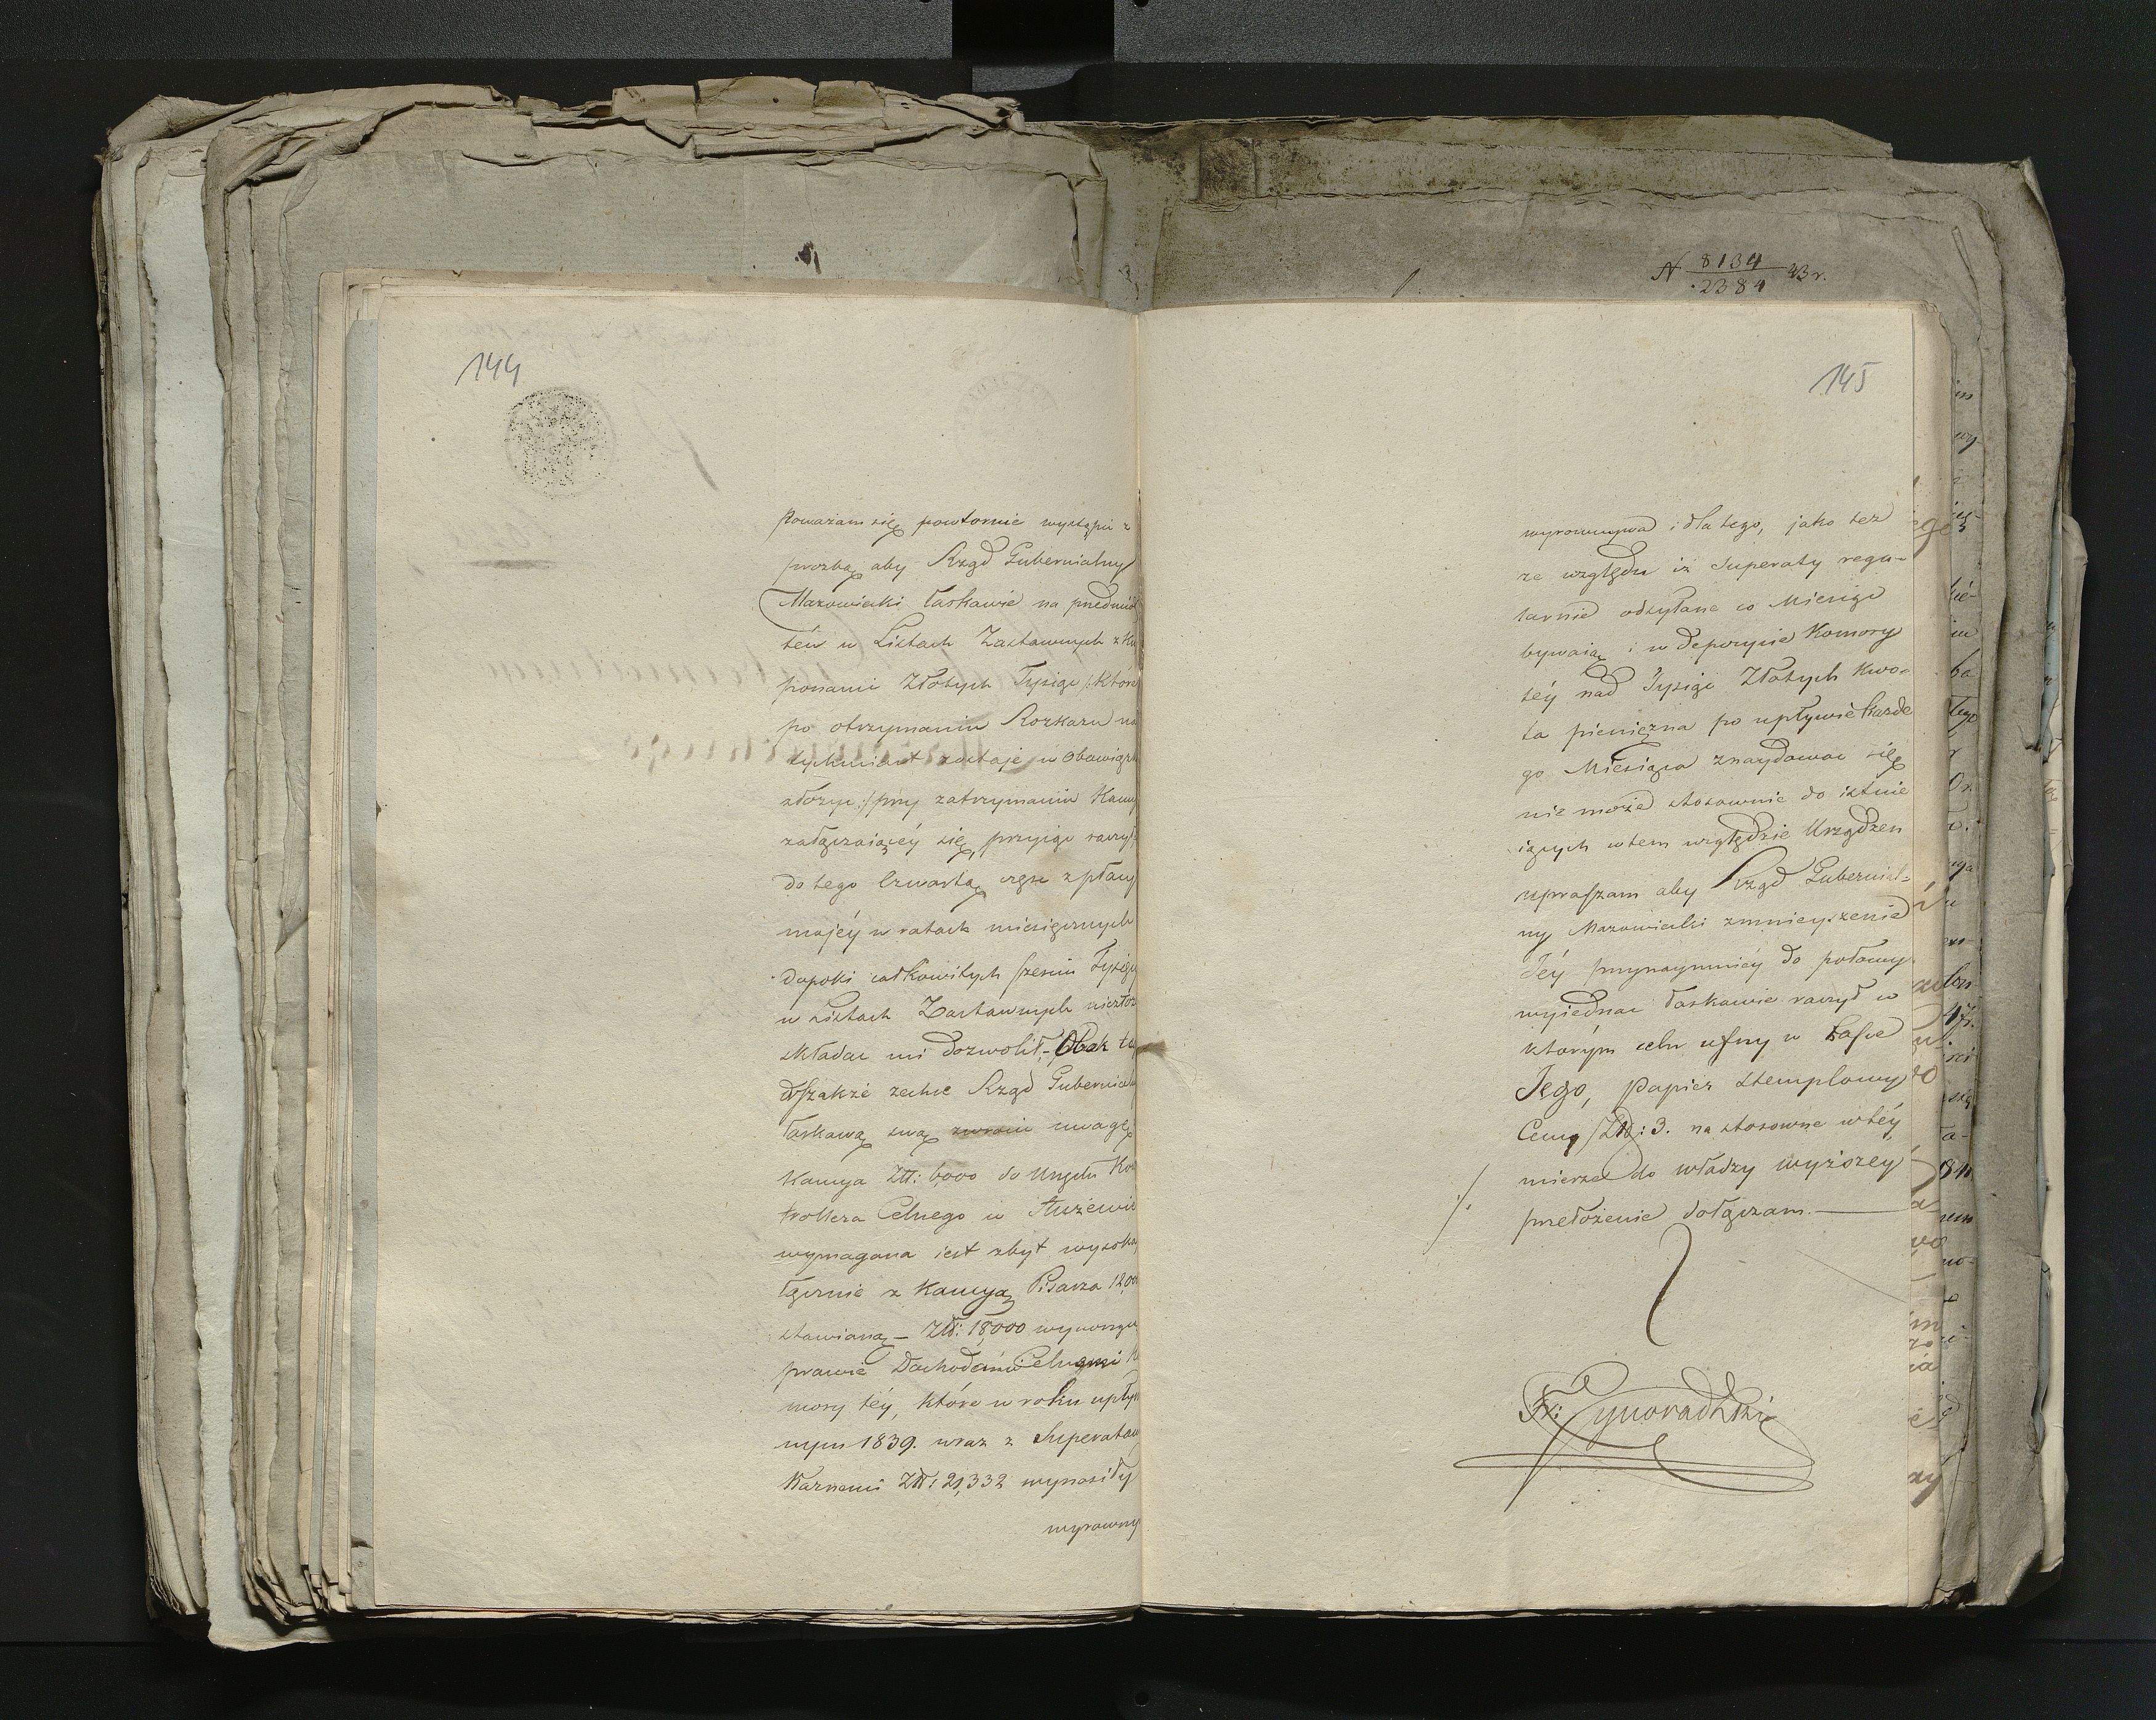 N 8134
2384 33 r.
144
poważam się powtornie wystąpić z
prozbą aby Rząd Gubernialny
Mazowiecki łaskawie na przedmiot
ten w Listach Zastawnych z Ku
ponami Złotych Tysiąc /: które
po otrzymaniu Rozkazu na
tychmiast zostaję w obowiązku
złożyć :/ przy zatrzymaniu Kaucyi
załączaiącéy się, przyiąć raczył
do tego czwartą część z płacy
mojéy w ratach miesięcznych
dopoki całkowitych sześciu Tysięcy
w Listach Zastawnych niezłożę
składać mi dozwolił, – Obok te
wszakże zechce Rząd Gubernialny
łaskawą swą zwrócić uwagę,
Kaucya Złt: 6,000 do Urzędu Kon
trollera Celnego w Służewie
wymagana iest zbyt wysoka
łącznie z Kaucyą Pisarza 12,000
stawianą – Złt: 18,000 wynosząc
prawie Dochodami Celnymi Ko
mory téy, które w roku upły
nym 1839. wraz z Superatami
Karnemi Złt: 21,332 wynosiły
wyrowny
145
wyrownywa i dla tego, jako też
ze względu iż Superaty regu-
larnie odsyłane co Miesiąc
bywaią i w depozycie Komory
téy nad Tysiąc Złotych kwo-
ta pieniężna po upływie każde
go Miesiąca znaydować się
nie może stosownie do istnie
iących w tem względzie Urządzeń
upraszam aby Rząd Gubernial-
ny Mazowiecki zmnieyszenie
Jéy przynaymniéy do połowy
wyiednać łaskawie raczył w
którym celu ufny w Łasce
Jego, Papier Stemplowy
Ceny Złt: 3. na stosowne w téy
mierze do władzy wyższey
przełożenie dołączam.